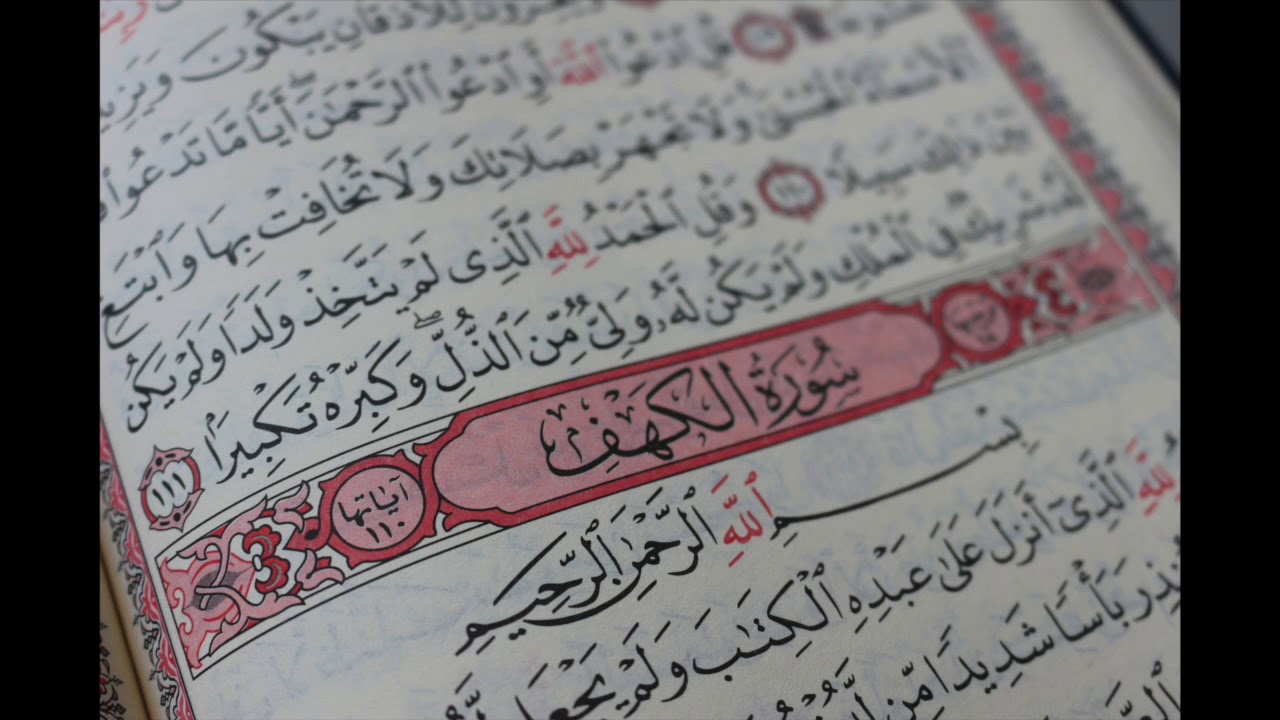 لِلْأَذْقَانِ يَبْكُونَ وَيَزِيدُ
قُلِ ٱدْعُوا۟ ٱللَّهَ أَوِ ٱدْعُوا۟ ٱلرَّحْمَٰنَ ۖ أَيًّا مَّا تَدْعُوا۟
ٱلْأَسْمَآءُ ٱلْحُسْنَىٰ ۚ وَلَا تَجْهَرْ بِصَلَاتِكَ وَلَا تُخَافِتْ بِهَا وَٱبْتَغِ
بَيْنَ ذَٰلِكَ سَبِيلًا ١١٠ وَقُلِ ٱلْحَمْدُ لِلَّهِ ٱلَّذِى لَمْ يَتَّخِذْ وَلَدًا وَلَمْ يَكُن
لَّهُۥ شَرِيكٌ فِى ٱلْمُلْكِ وَلَمْ يَكُن لَّهُۥ وَلِىٌّ مِّنَ ٱلذُّلِّ ۖ وَكَبِّرْهُ تَكْبِيرًۢا ١١١
سُورَةُ الكَهَفِ آيَاتُهَا ١١٠
بِسْمِ ٱللَّهِ ٱلرَّحْمَٰنِ ٱلرَّحِيمِ
لِلَّهِ ٱلَّذِىٓ أَنزَلَ عَلَىٰ عَبْدِهِ ٱلْكِتَٰبَ وَلَمْ يَجْعَل
بَأْسًا شَدِيدًا مِّن